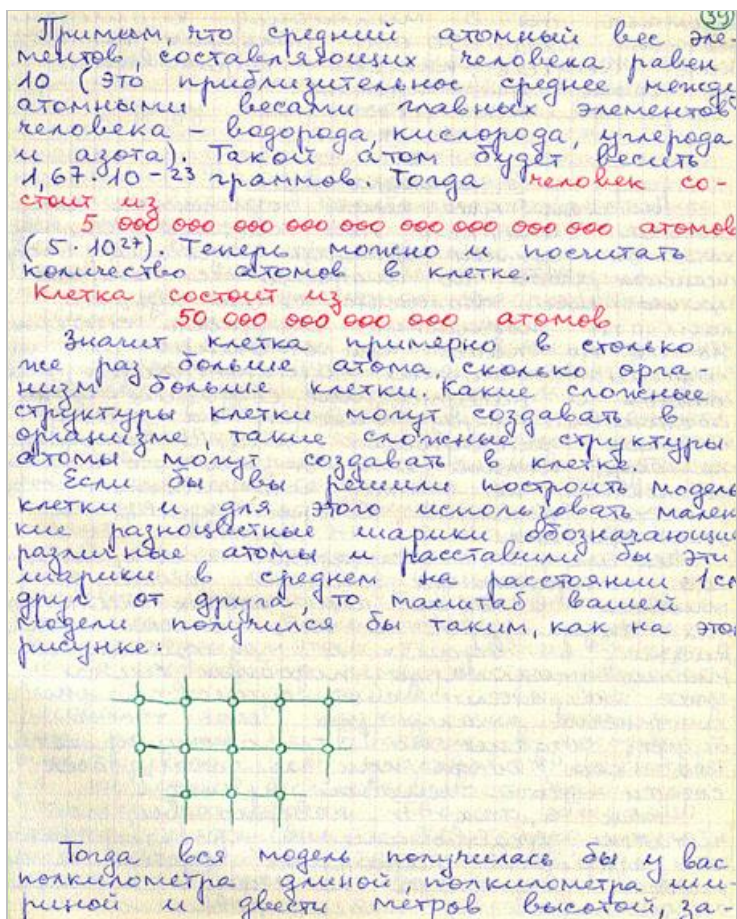 39
Примем, что средний атомный вес эле-
ментов составляющих человека равен
10 (это приблизительное среднее между
атомными весами главных элементов
человека – водорода, кислорода, углерода
и азота). Такой атом будет весить
1,67·10-23 граммов. Тогда человек со-
стоит из
5 000 000 000 000 000 000 000 000 000 атомов
(5·10²⁷). Теперь можно и посчитать
количество атомов в клетке.
Клетка состоит из
50 000 000 000 000 атомов
Значит клетка примерно в столько
же раз больше атома сколько орга-
низм больше клетки. Какие сложные
структуры клетки могут создавать в
организме такие сложные структуры
атомы могут создавать в клетке.
Если бы вы решили построить модель
клетки и для этого использовать мален
кие разноцветные шарики обозначающие
различные атомы и расставили бы эти
шарики в среднем на расстоянии 1см
друг от друга, то масштаб вашей
модели получился бы таким, как на этом
рисунке.
Тогда вся модель получилась бы у вас
полкилометра длиной полкилометра ши-
риной и двести метров высотой за-